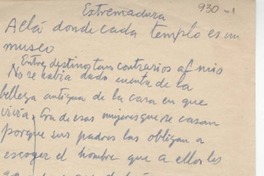 Extremadura 930-1
Allá donde cada templo es un
museo
Entre destinos tan contrarios al mío
No se había dado cuenta de la
belleza antigua de la casa en que
vivía. Era de esas mujeres que se casan
porque sus padres las obligan a
escoger el hombre que a ellos les